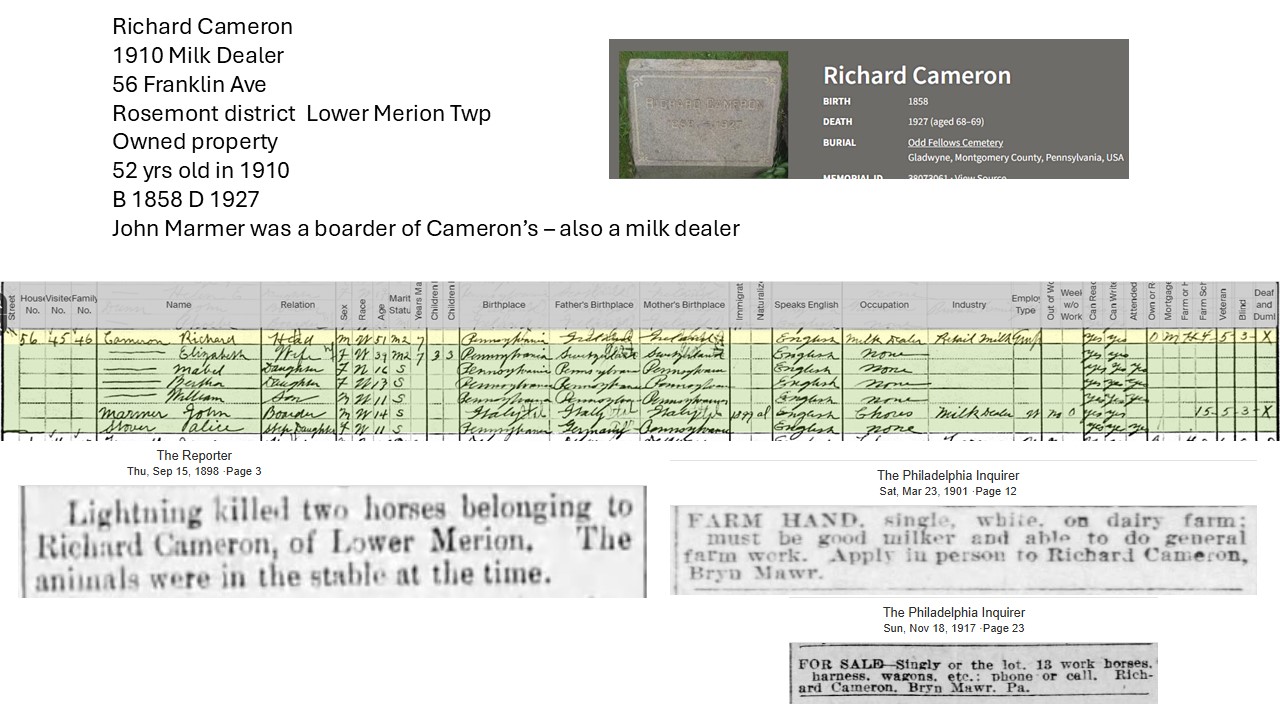 Richard Cameron
1910 Milk Dealer
56 Franklin Ave
Rosemont district  Lower Merion Twp
Owned property
52 yrs old in 1910
B 1858 D 1927
John Marmer was a boarder of Cameron's – also a milk dealer
RICHARD CAMERON
1858 – 1927
Richard Cameron
BIRTH 1858
DEATH 1927 (aged 68–69)
BURIAL Odd Fellows Cemetery
Gladwyne, Montgomery County, Pennsylvania, USA
MEMORIAL ID 38073061 · View Source
Street House No. Visited No. Family No. Name Relation Sex Race Age Marit Statu Years Ma Children Children Birthplace Father's Birthplace Mother's Birthplace Immigrat Naturaliz Speaks English Occupation Industry Employ Type Out of W Week w/o Work Can Rea Can Writ Attended Own or R Mortgag Farm or H Farm Sch Veteran Blind Deaf and Dumb
56 45 46 Cameron Richard Head M W 51 M2 7 Pennsylvania English Milk Dealer Retail Milk Emp Yes Yes O M
Elizabeth Wife F W 39 M2 7 3 3 Pennsylvania Switzerland Switzerland English None Yes Yes
Mabel Daughter F W 16 S Pennsylvania Pennsylvania Pennsylvania English None Yes Yes Yes
Bertha Daughter F W 13 S Pennsylvania Pennsylvania Pennsylvania English None Yes Yes Yes
William Son M W 11 S Pennsylvania Pennsylvania Pennsylvania English None Yes Yes Yes
Marmer John Boarder M W 14 S Italy Italy Italy 1897 al English Chores Milk Dealer W no 0 Yes Yes 15-5-3-X
Stover Alice Step Daughter F W 11 S Pennsylvania Germany Pennsylvania English None Yes Yes Yes
The Reporter
Thu, Sep 15, 1898 ·Page 3
Lightning killed two horses belonging to
Richard Cameron, of Lower Merion. The
animals were in the stable at the time.
The Philadelphia Inquirer
Sat, Mar 23, 1901 ·Page 12
FARM HAND, single, white, on dairy farm;
must be good milker and able to do general
farm work. Apply in person to Richard Cameron,
Bryn Mawr.
The Philadelphia Inquirer
Sun, Nov 18, 1917 ·Page 23
FOR SALE—Singly or the lot, 13 work horses,
harness, wagons, etc.; phone or call. Rich-
ard Cameron, Bryn Mawr, Pa.